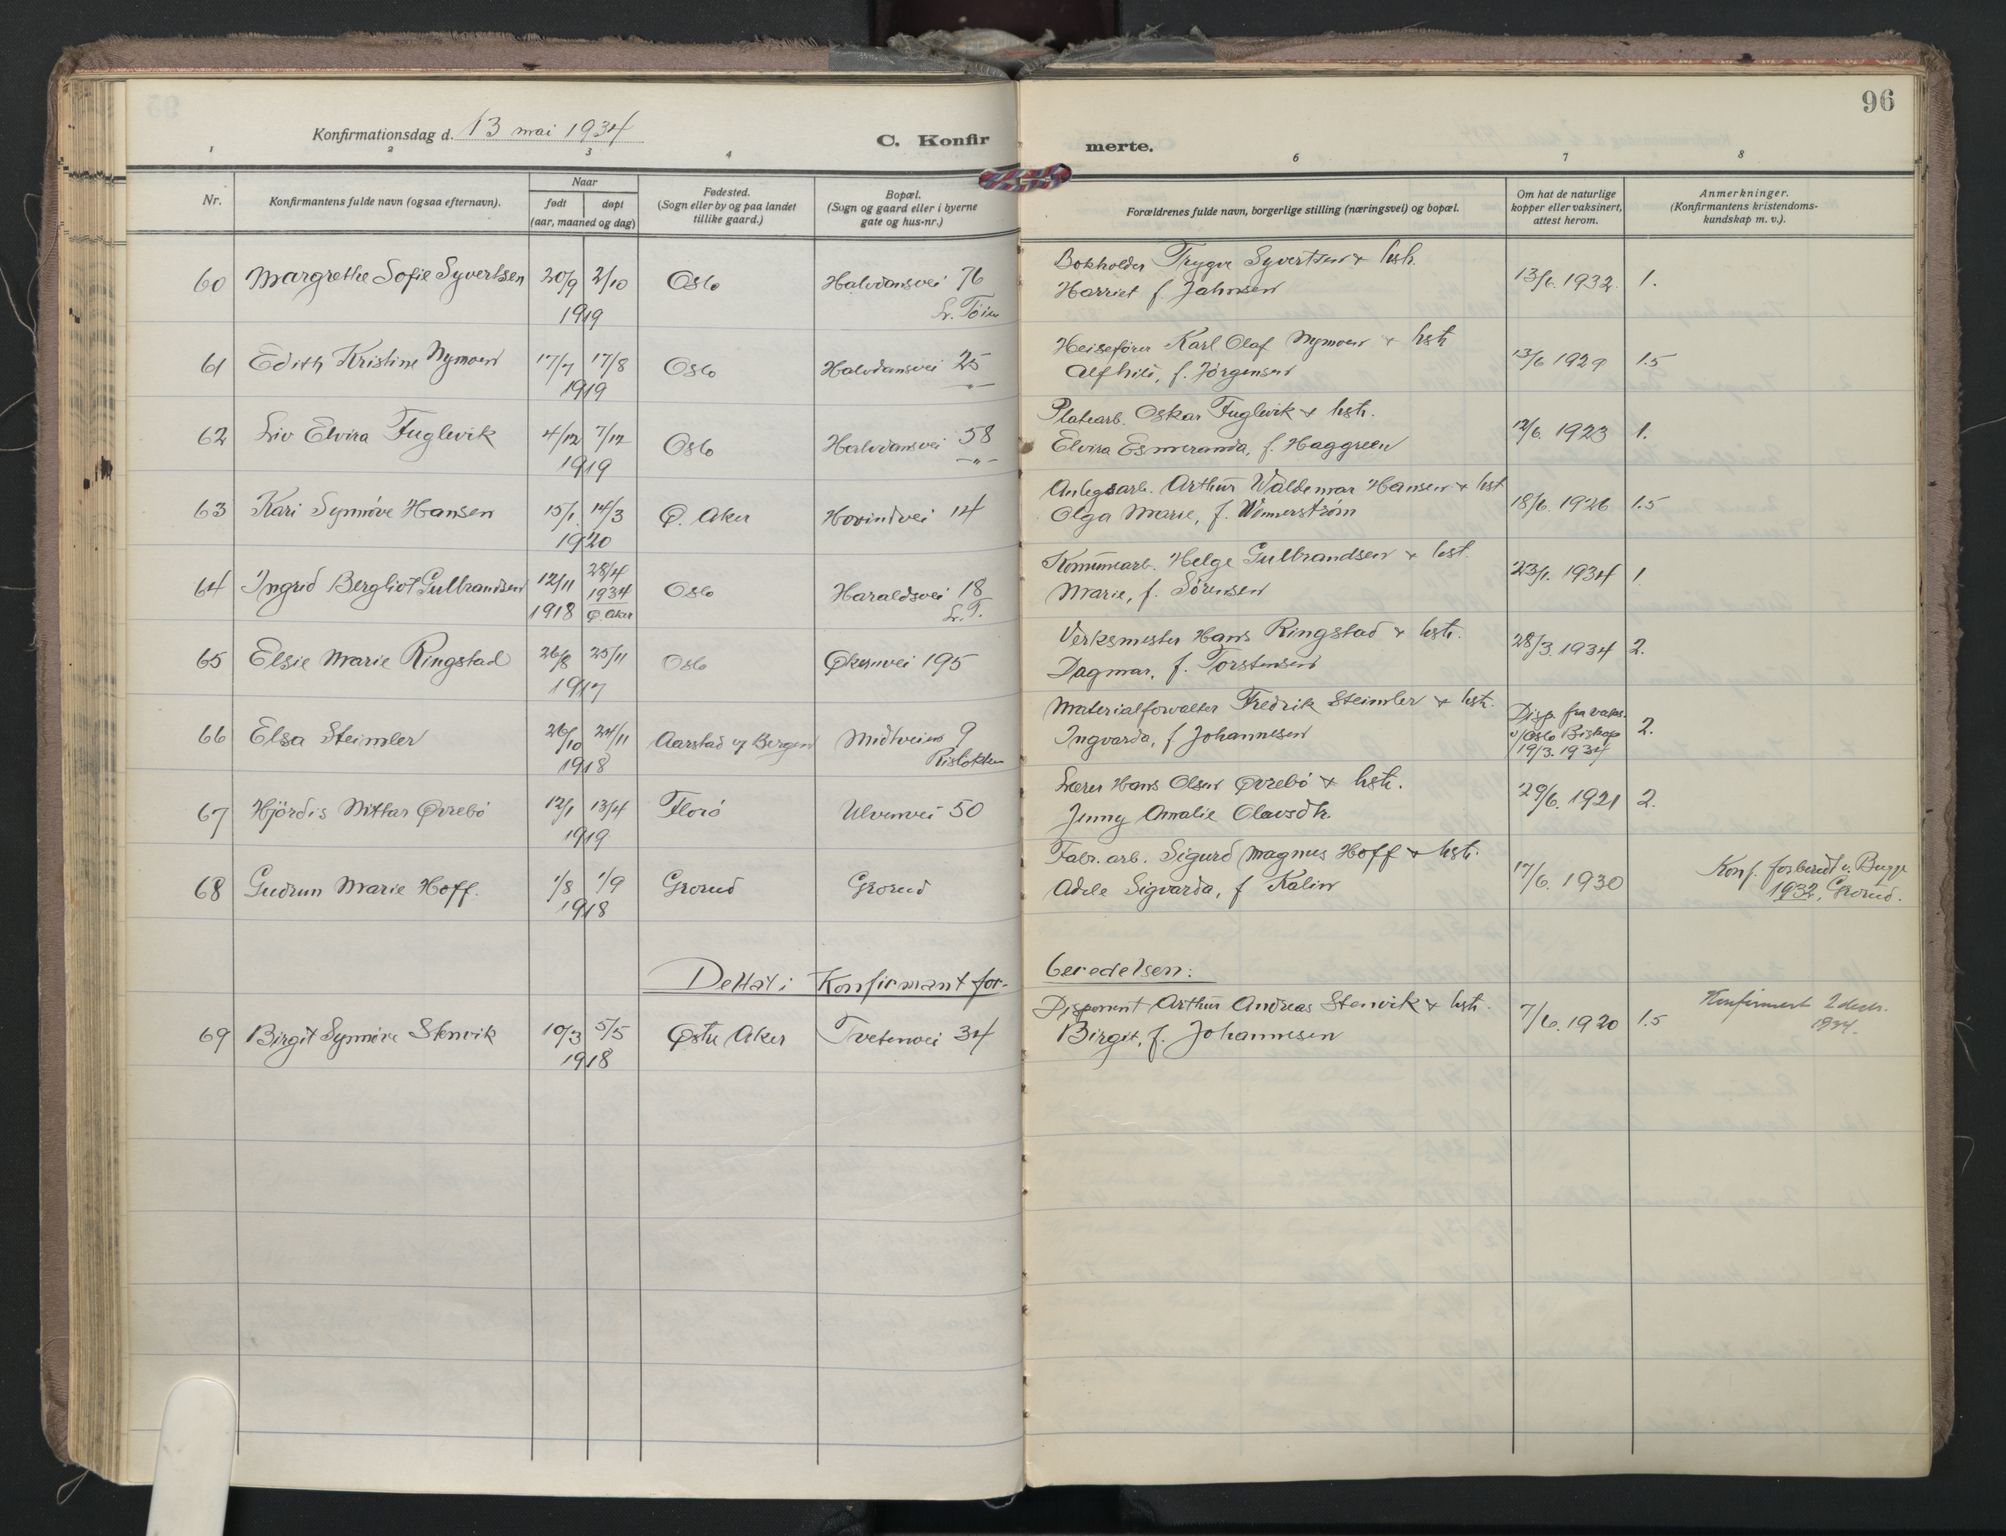 96
Konfirmationsdag d. 13 mai 1934
C. Konfirmerte.
1 2 3 4 6 7 8
Nr.
Konfirmantens fulde navn (ogsaa efternavn).
Naar
født
døpt
(aar, maaned og dag)
Fødested.
(Sogn eller by og paa landet
tillike gaard.)
Bopæl.
(Sogn og gaard eller i byerne
gate og hus-nr.)
Forældrenes fulde navn, borgerlige stilling (næringsvei) og bopæl.
Om hat de naturlige
kopper eller vaksinert,
attest herom.
Anmerkninger.
(Konfirmantens kristendoms-
kundskap m. v.).
60 Margrethe Sofie Syvertsen 20/9 2/10 1919 Oslo Halvdansvei 76 Lr. Tøien
Bokholder Trygve Syvertsen & hstr.
Harriet f. Jahnsen 13/6. 1932. 1.
61 Edith Kristine Nymoen 17/7 17/8 1919 Oslo Halvdansvei 25 -"-
Heisefører Karl Olaf Nymoen & hstr
Alfhild, f. Jørgensen 13/6 1929 1.5
62 Liv Elvira Fuglevik 4/12 7/12 1919 Oslo Halvdansvei 58 -"-
Platearb. Oskar Fuglevik & hstr.
Elvira Esmeranda, f. Haggreen 12/6. 1923 1.
63 Kari Synnøve Hansen 15/1. 14/3 1920 Ø. Aker Hovindvei 14
Anlegsarb. Arthur Waldemar Hansen & hst
Olga Marie, f. Wennerstrøm 18/6. 1926 1.5
64 Ingrid Bergliot Gulbrandsen 12/11 1918 28/4 1934 Ø. Aker Oslo Haraldsvei 18 Lr. T.
Kommunearb. Helge Gulbrandsen & hst.
Marie, f. Sørensen 23/1. 1934 1.
65 Elsie Marie Ringstad 26/8 25/11 1917 Oslo Økernvei 195
Verksmester Hans Ringstad & hstr.
Dagmar, f. Torstensen 28/3. 1934 2.
66 Elsa Steimler 26/10 24/11 1918 Aarstad v/ Bergen Midtveien 9 Risløkken
Materialforvalter Fredrik Steimler & hstr.
Ingvarda, f Johannesen
Disp. fra vaks.
v/Oslo Biskop
19/3. 1934 2.
67 Hjördis Mittar Øvrebö 12/1 13/4 1919 Florö Ulvenvei 50
Lærer Hans Olsen Øvrebö & hstr.
Jenny Amalie Olavsdtr. 29/6. 1921 2.
68 Gudrun Marie Hoff. 1/8 1/9 1918 Grorud Grorud
Fabr. arb. Sigurd Magnus Hoff & hstr.
Adele Sigvarda, f Kalin 17/6. 1930
Konf. forberedt v. Bugge
1932, Grorud.
Deltat i Konfirmantforberedelsen:
69 Birgit Synnöve Stenvik 10/3 5/5 1918 Østre Aker Tvetenvei 34
Disponent Arthur Andreas Stenvik & hstr.
Birgit, f. Johannesen 7/6. 1920 1.5
Konfirmert 2 desbr.
1934.